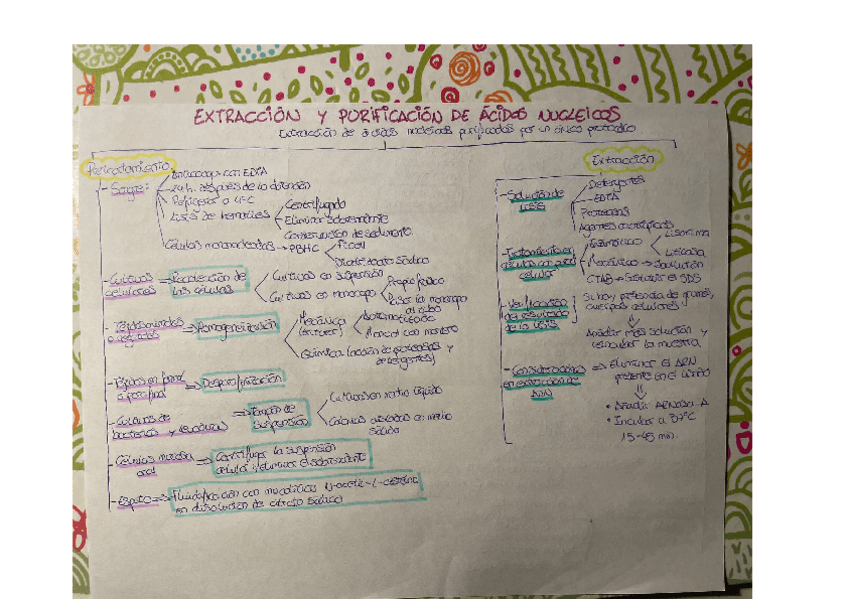 EXTRACCIÓN Y PURIFICACIÓN DE ÁCIDOS NUCLEICOS
Extracción de ácidos nucleicos purificados por un único protocolo
Pretratamiento
- Sangre:
anticoag. con EDTA
24 h. después de la obtención
Refrigerar a 4ºC
Lisis de hematíes
Centrifugado
Eliminar sobrenadante
Conservación de sedimento
Células mononucleadas → PBHC
Ficoll
Diatrizoato sódico
- Cultivos celulares ⇒ Recolección de las células
Cultivos en suspensión
Cultivos en monocapa
Raspar la monocapa
- Tejidos ⇒ Homogenización
Mecánica
Automatizado
Manual con mortero
Química (acción de proteasas y detergentes)
- Tejidos en parafina ⇒ Desparafinización
- Cultivos de bacterias y levaduras ⇒ Tampón de suspensión
Cultivos en medio líquido
Colonias aisladas en medio sólido
- Células mucosa oral ⇒ Centrifugar la suspensión celular y eliminar el sobrenadante
- Esputo ⇒ Fluidificación con mucolíticos N-acetil-L-cisteína en disolución de citrato sódico
Extracción
- Solución de lisis
Detergentes
- EDTA
Proteasas
Agentes
- Tratamiento en células con pared celular
Enzimático
Lisozima
Liticasa
Mecánico → Sonicación
CTAB → Sustituir el SDS
- Verificación del resultado de la lisis
Si hay presencia de grumos, cuerpos celulares
⇓
Añadir más solución y reincubar la muestra
- Consideraciones en extracción de ADN
⇒ Eliminar el ARN presente en el lisado
⇓
• Añadir ARNasa-A
• Incubar a 37ºC
15-45 min.